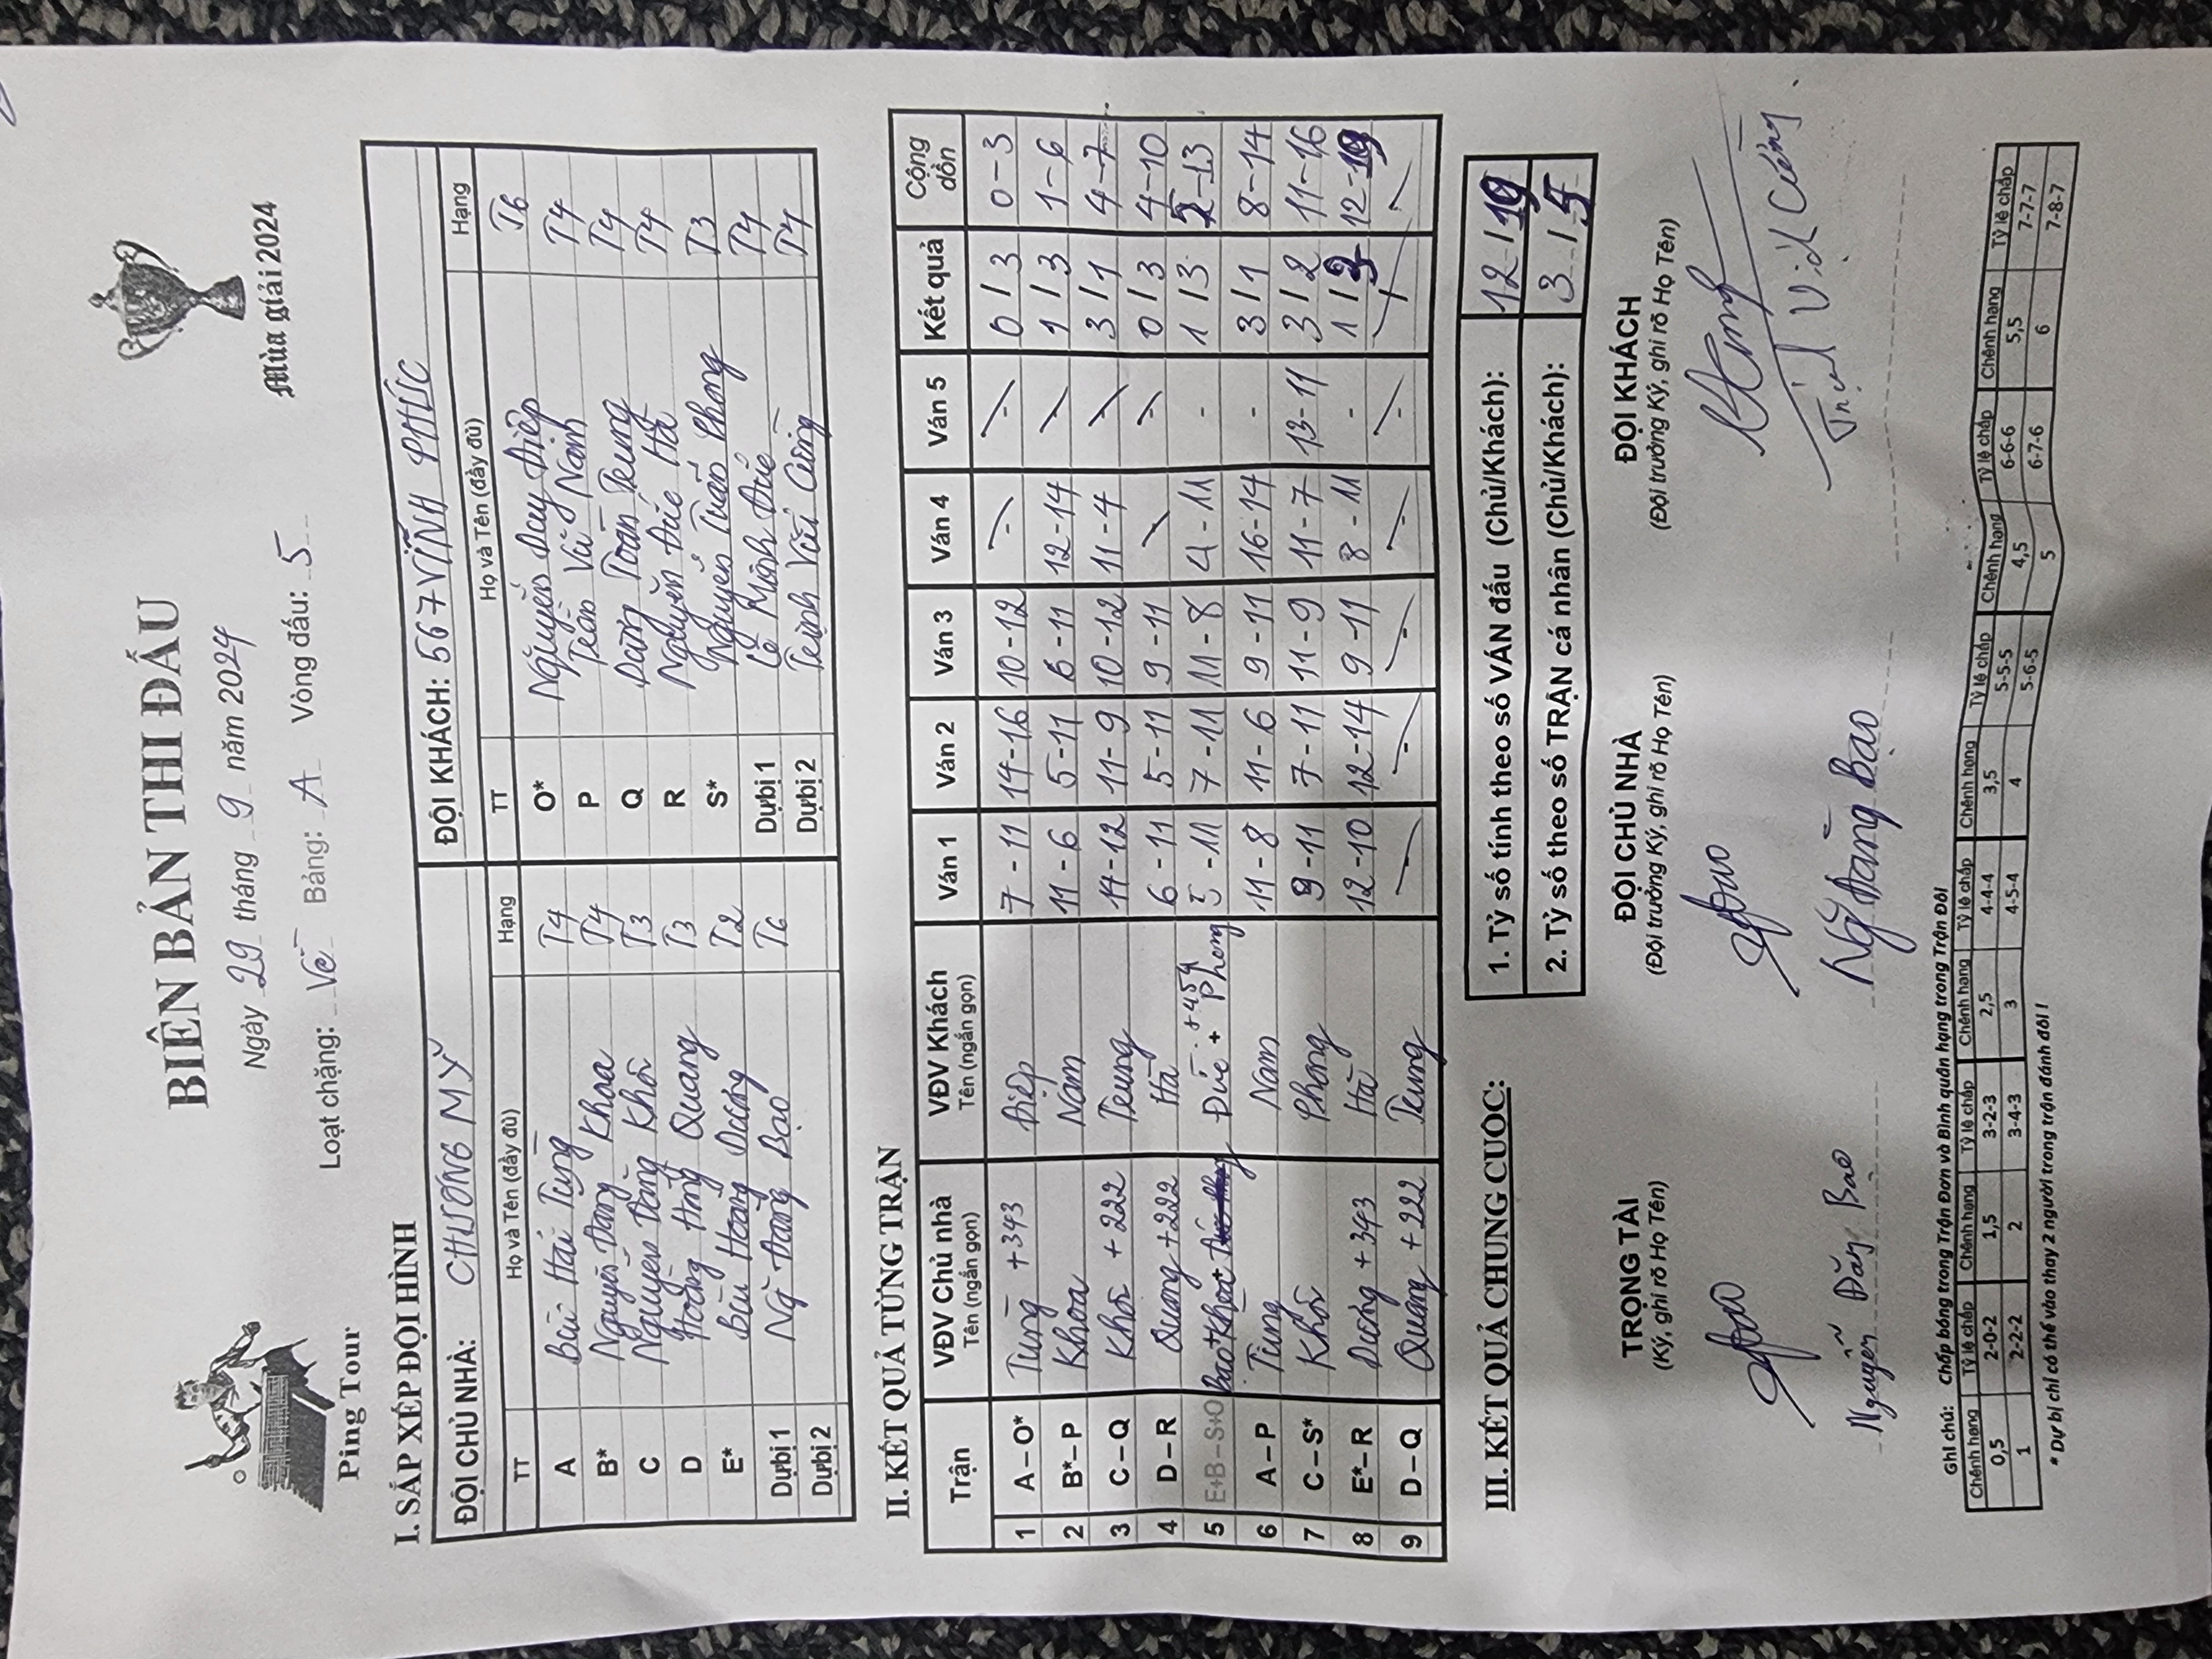 BIÊN BẢN THI ĐẤU
Ngày 29 tháng 9 năm 2024
Mùa giải 2024
Ping Tour
Loạt chặng: Về Bảng: A Vòng đấu: 5
I. SẮP XẾP ĐỘI HÌNH
ĐỘI CHỦ NHÀ: CHƯƠNG MỸ ĐỘI KHÁCH: 567 VĨNH PHÚC
TT Họ và Tên (đầy đủ) Hạng TT Họ và Tên (đầy đủ) Hạng
A Bùi Hải Tùng T4 O* Nguyễn Duy Điệp T6
B* Nguyễn Đăng Khoa T4 P Trần Vũ Nam T4
C Nguyễn Đăng Khôi T3 Q Dương Toàn Trung T4
D Hoàng Hồng Quang T3 R Nguyễn Đức Hà T4
E* Bùi Hoàng Dương T2 S* Nguyễn Tuấn Phong T3
Dự bị 1 Ng Đăng Bạo T6 Dự bị 1 Lê Minh Đức T4
Dự bị 2 Dự bị 2 Trịnh Cường T4
II. KẾT QUẢ TỪNG TRẬN
Trận VĐV Chủ nhà Tên (ngắn gọn) VĐV Khách Tên (ngắn gọn) Ván 1 Ván 2 Ván 3 Ván 4 Ván 5 Kết quả Cộng dồn
1 A – O* Tùng +343 Điệp 7 - 11 14-16 10-12 - - 0 / 3 0-3
2 B* – P Khoa Nam 11 - 6 5-11 6-11 12-14 1 / 3 1-6
3 C – Q Khôi +222 Trung 14-12 11-9 10-12 11-4 3 / 1 4-7
4 D – R Quang +222 Hà 6 - 11 5-11 9-11 0 / 3 4-10
5 E+B – S+O Bạo+Khoa+ Đức + Phong +454 5 - 11 7-11 11-8 4-11 - 1 / 3 5-13
6 A – P Tùng Nam 11-8 11-6 9-11 16-14 - 3 / 1 8-14
7 C – S* Khôi Phong 9-11 7-11 11-9 11-7 13-11 3 / 2 11-16
8 E* – R Dương +343 Hà 12-10 12-14 9-11 8-11 - 1 / 3 12-19
9 D – Q Quang +222 Trung - - - - - /
III. KẾT QUẢ CHUNG CUỘC:
1. Tỷ số tính theo số VÁN đấu (Chủ/Khách): 12 / 19
2. Tỷ số theo số TRẬN cá nhân (Chủ/Khách): 3 / 5
TRỌNG TÀI ĐỘI CHỦ NHÀ ĐỘI KHÁCH
(Ký, ghi rõ Họ Tên) (Đội trưởng Ký, ghi rõ Họ Tên) (Đội trưởng Ký, ghi rõ Họ Tên)
Nguyễn Đăng Bạo Ng Đăng Bạo Trịnh Cường
Ghi chú: Chấp bóng trong Trận Đơn và Bình quân hạng trong Trận Đôi
Chênh hạng Tỷ lệ chấp Chênh hạng Tỷ lệ chấp Chênh hạng Tỷ lệ chấp Chênh hạng Tỷ lệ chấp Chênh hạng Tỷ lệ chấp Chênh hạng Tỷ lệ chấp
0,5 2-0-2 1,5 3-2-3 2,5 4-4-4 3,5 5-5-5 4,5 6-6-6 5,5 7-7-7
1 2-2-2 2 3-4-3 3 4-5-4 4 5-6-5 5 6-7-6 6 7-8-7
* Dự bị chỉ có thể vào thay 2 người trong trận đánh đôi !